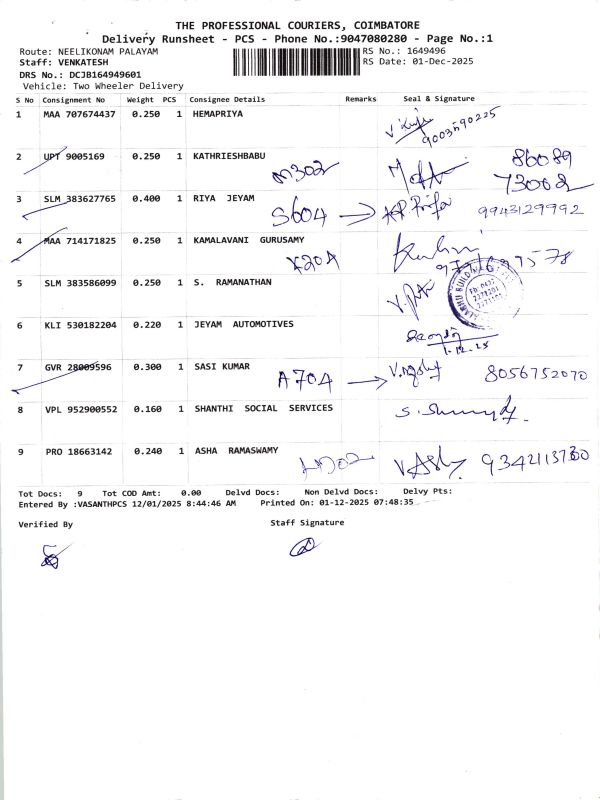 THE PROFESSIONAL COURIERS, COIMBATORE
Delivery Runsheet - PCS - Phone No.:9047080280 - Page No.:1
Route: NEELIKONAM PALAYAM RS No.: 1649496
Staff: VENKATESH RS Date: 01-Dec-2025
DRS No.: DCJB164949601
Vehicle: Two Wheeler Delivery
S No Consignment No Weight PCS Consignee Details Remarks Seal & Signature
1 MAA 707674437 0.250 1 HEMAPRIYA
2 UPT 9005169 0.250 1 KATHRIESHBABU M302 86089
73002
3 SLM 383627765 0.400 1 RIYA JEYAM S604 → 9943129992
4 MAA 714171825 0.250 1 KAMALAVANI GURUSAMY
5 SLM 383586099 0.250 1 S. RAMANATHAN
6 KLI 530182204 0.220 1 JEYAM AUTOMOTIVES
1.12.25
7 GVR 28009596 0.300 1 SASI KUMAR A704 → 8056752070
8 VPL 952900552 0.160 1 SHANTHI SOCIAL SERVICES
9 PRO 18663142 0.240 1 ASHA RAMASWAMY
Tot Docs: 9 Tot COD Amt: 0.00 Delvd Docs: Non Delvd Docs: Delvy Pts:
Entered By :VASANTHPCS 12/01/2025 8:44:46 AM Printed On: 01-12-2025 07:48:35
Verified By Staff Signature